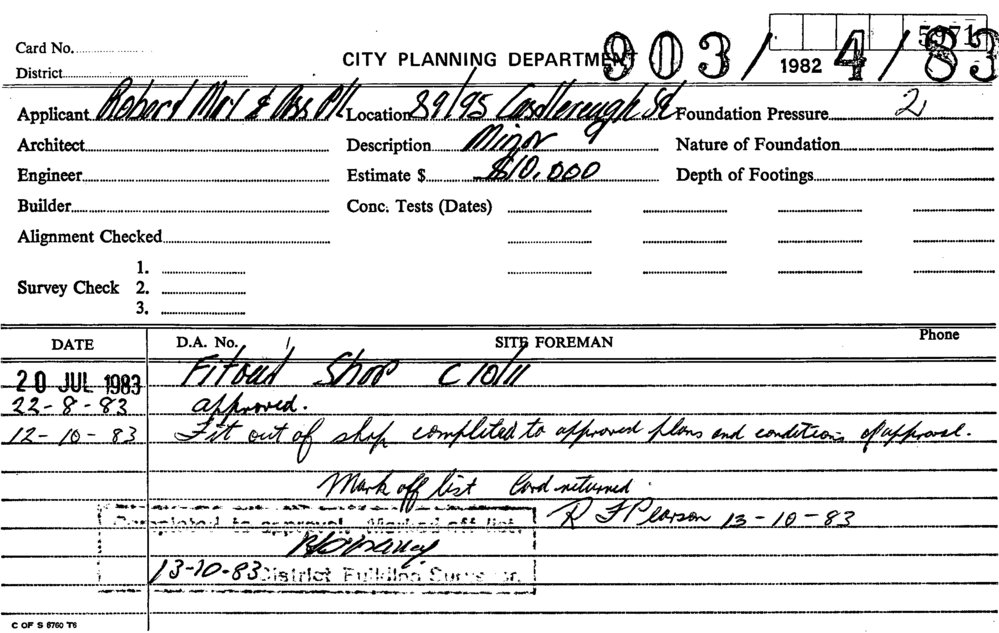 5971
Card No.
CITY PLANNING DEPARTMENT 903/4/83
1982
District
Applicant Robert & Ass P/L Location 89/95 Castlereagh St Foundation Pressure 2
Architect Description Minor Nature of Foundation
Engineer Estimate $ $10,000 Depth of Footings
Builder Conc. Tests (Dates)
Alignment Checked
1.
Survey Check 2.
3.
DATE D.A. No. SITE FOREMAN Phone
20 JUL 1983 Fitout Shop C10/11
22-8-83 approved.
12-10-83 Fit out of shop completed to approved plans and conditions of approval.
Mark off list Card returned.
R F Pearson 13-10-83
Completed to approval. Marked off list.
13-10-83 District Building Surveyor.
C OF S 8760 T6